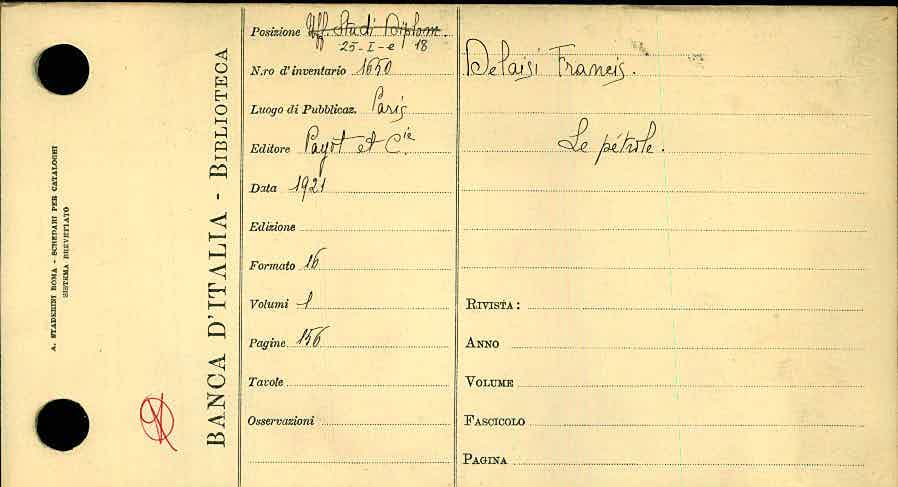 A. STADERINI ROMA - SCHEDARI PER CATALOGHI
SISTEMA BREVETTATO
BANCA D'ITALIA - BIBLIOTECA
Posizione Uff Studi Diplom.
25-I-e 18
N.ro d'inventario 1650
Luogo di Pubblicaz. Paris
Editore Payot et Cie.
Data 1921
Edizione
Formato 16
Volumi 1
Pagine 156
Tavole
Osservazioni
Delaisi Francis.
Le pétrole.
RIVISTA:
ANNO
VOLUME
FASCICOLO
PAGINA